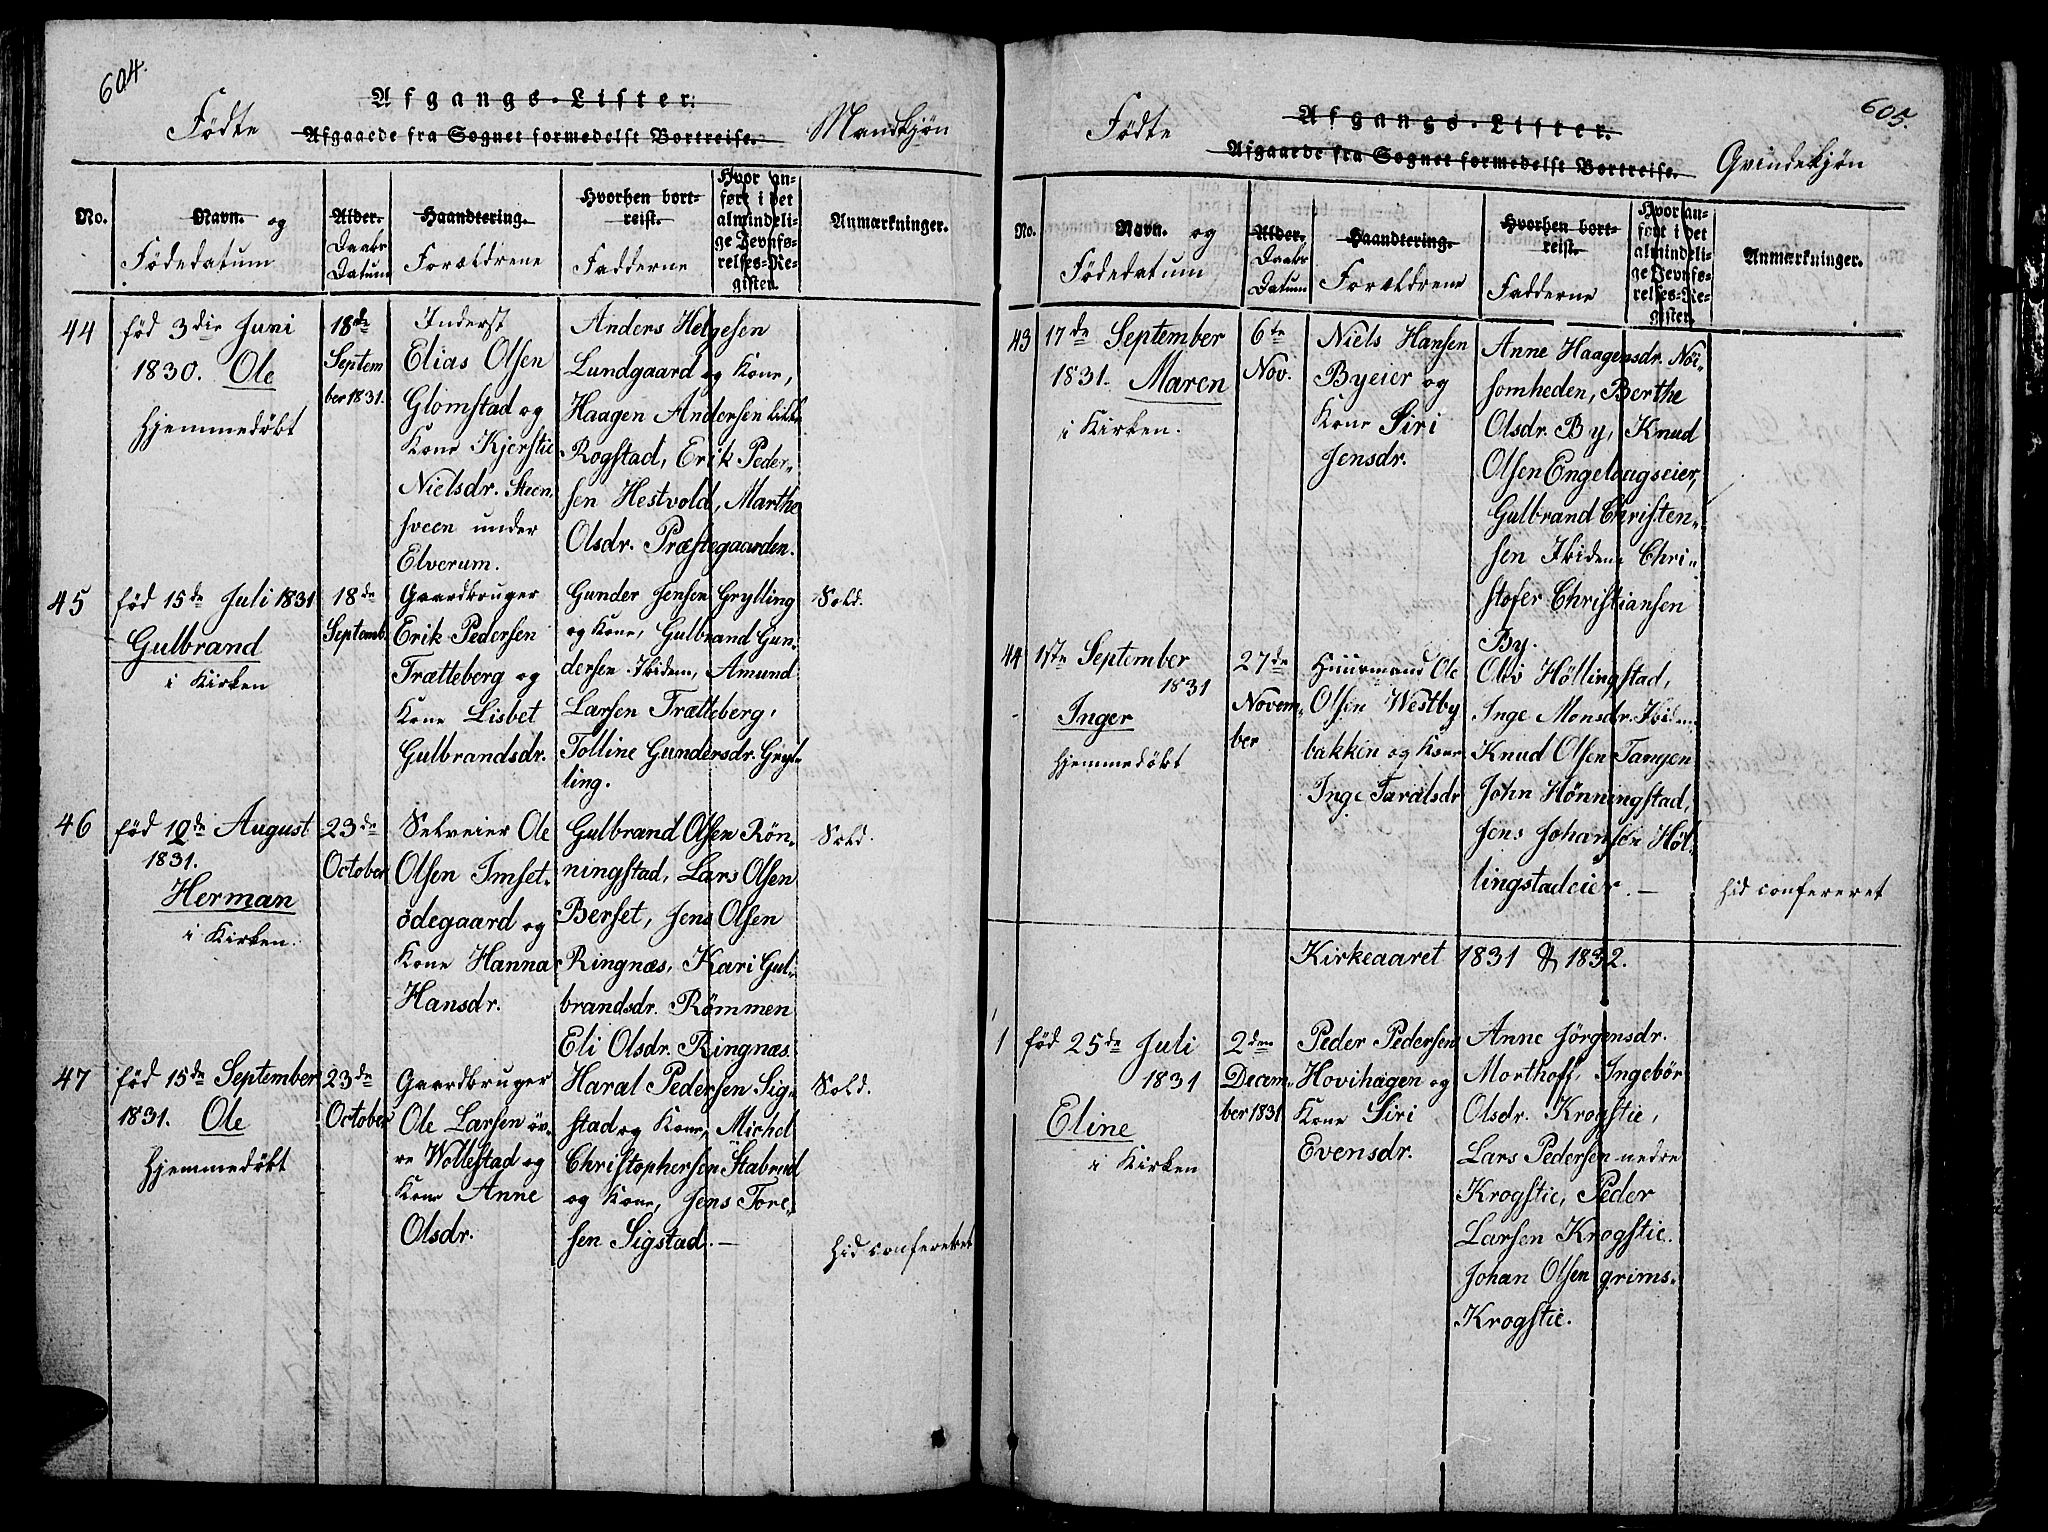 604.
Afgangs-Lister.
Fødte Afgaaede fra Sognet formedelst Bortreise. Mandkjøn
No.
Navn. og
Fødedatum
Alder.
Daabs
Datum
Haandtering.
Forældrene
Hvorhen bort-
reist.
Fadderne
Hvor an-
ført i det
almindeli-
ge Jevnfø-
relses-Re-
gister.
Anmærkninger.
44
fød 3die Juni
1830. Ole
Hjemmedøbt
18de
Septem
ber 1831.
Inderst
Elias Olsen
Glomstad og
Kone Kjerstie
Nielsdr. Steen,
sveen under
Elverum.
Anders Helgesen
Lundgaard og Kone,
Haagen Andersen
Rogstad, Erik Peder-
sen Hestvold, Marthe
Olsdr. Præstegaarden.
45
fød 15de Juli 1831
Gulbrand
i Kirken
18de
Septemb.
Gaardbruger
Erik Pedersen
Trætteberg og
Kone Lisbet
Gulbrandsdr.
Gunder Jensen Grylling
og Kone, Gulbrand Gun-
dersen Ibidem, Amund
Larsen Trætteberg,
Tolline Gundersdr. Gryl-
ling.
Sold.
46
fød 12de August
1831.
Herman
i Kirken.
23de
October
Selveier Ole
Olsen Imset-
ødegaard og
Kone Hanna
Hansdr.
Gulbrand Olsen Røn-
ningstad, Lars Olsen
Berset, Jens Olsen
Ringnæs, Kari Gul-
brandsdr. Rømmen
Eli Olsdr. Ringnæs.
Sold.
47
fød 15de September
1831. Ole
Hjemmedøbt
23de
October
Gaardbruger
Ole Larsen øv-
re Wollestad og
Kone Anne
Olsdr.
Haral Pedersen Sig-
stad og Kone, Michel
Christophersen Stabrud
og Kone, Jens Tore-
sen Sigstad. —
Sold.
hid confereret
605.
Afgangs-Lister.
Fødte Afgaaede fra Sognet formedelst Bortreise. Qvindekjøn
No.
Navn. og
Fødedatum
Alder.
Daabs
Datum
Haandtering.
Forældrene
Hvorhen bort-
reist.
Fadderne
Hvor an-
ført i det
almindeli-
ge Jevnfø-
relses-Re-
gister.
Anmærkninger.
43
17de September
1831. Maren
i Kirken.
6te
Nov.
Niels Hansen
Byeier og
Kone Siri
Jensdr.
Anne Haagensdr. Nøi-
somheden, Berthe
Olsdr. By, Knud
Olsen Engebagseier,
Gulbrand Christen-
sen Ibidem Chri-
stofer Christiansen
By.
44
1ste September
1831
Inger
Hjemmedøbt
27de
Novem-
ber
Huusmand Ole
Olsen Westby
bakken og Kone
Inge Taralsdr
Oliv Høllingstad,
Inge Monsdr. Ibidem
Knud Olsen Tangen
John Hønningstad,
Jens Johansen Høl-
lingstadeier. —
hid confereret
Kirkeaaret 1831 & 1832.
1
fød 25de Juli
1831
Eline
i Kirken
2den
Decem-
ber 1831
Peder Pedersen
Hovihagen og
Kone Siri
Evensdr.
Anne Jørgensdr.
Morthoff, Ingebør
Olsdr. Krogstie,
Lars Pedersen nedre
Krogstie, Peder
Larsen Krogstie.
Johan Olsen grims-
Krogstie.